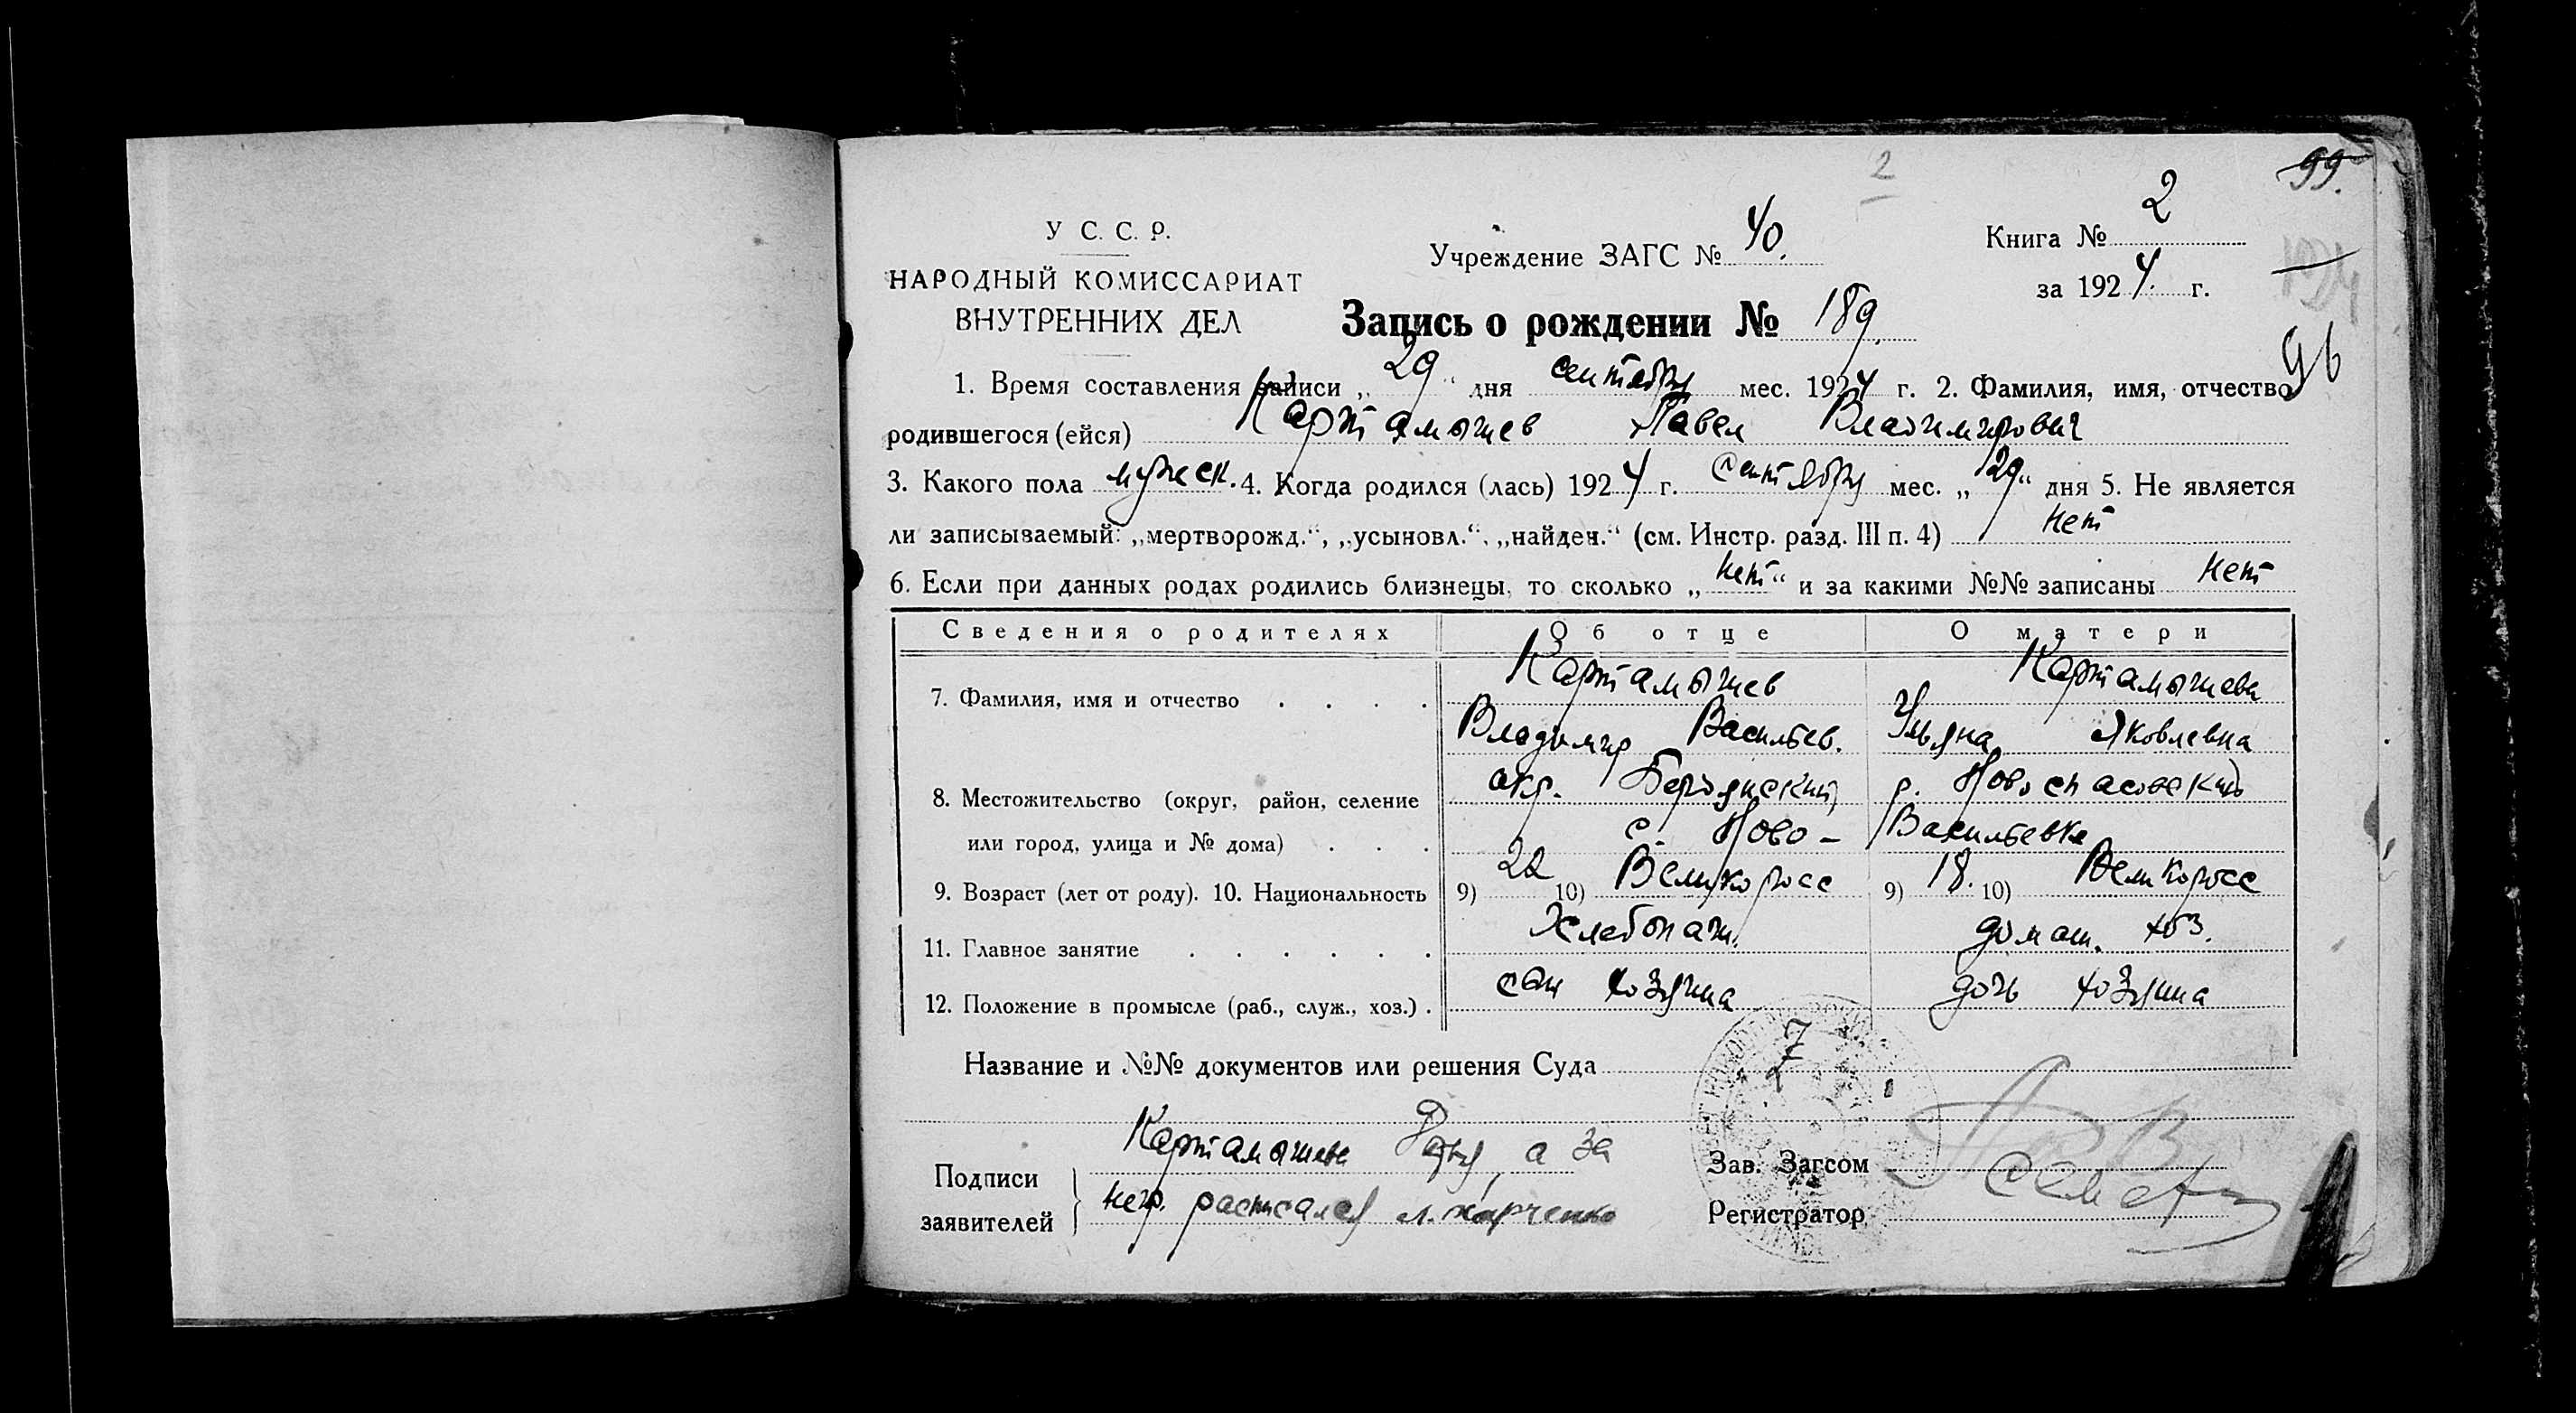 99.
2
У С. С. Р.
НАРОДНЫЙ КОМИССАРИАТ
ВНУТРЕННИХ ДЕЛ
Учреждение ЗАГС № 40.
Книга № 2
за 1924 г.
Запись о рождении № 189.
96
1. Время составления записи „29“ дня сентября мес. 1924 г. 2. Фамилия, имя, отчество
родившегося (ейся) Картамышев Павел Владимирович
3. Какого пола мужеск. 4. Когда родился (лась) 1924 г. Сентября мес. „29“ дня 5. Не является
ли записываемый: „мертворожд.“, „усыновл.“, „найден.“ (см. Инстр. разд. III п. 4) нет
6. Если при данных родах родились близнецы, то сколько „нет“ и за какими №№ записаны нет
Сведения о родителях Об отце О матери
7. Фамилия, имя и отчество . . . . Картамышев Картамышева
Владимир Васильев. Ульяна Яковлевна
8. Местожительство (округ, район, селение окр. Бердянский р. Новоспасовский
или город, улица и № дома) . . . с. Ново- Васильевка
9. Возраст (лет от роду). 10. Национальность 9) 22 10) Великоросс 9) 18. 10) Великоросс
11. Главное занятие . . . . . . Хлебопаш. домаш. хоз.
12. Положение в промысле (раб., служ., хоз.) . сын хозяина дочь хозяина
Название и №№ документов или решения Суда
7
Подписи заявителей
Картамышев а за
негр. расписался Харченко
Зав. Загсом
Регистратор